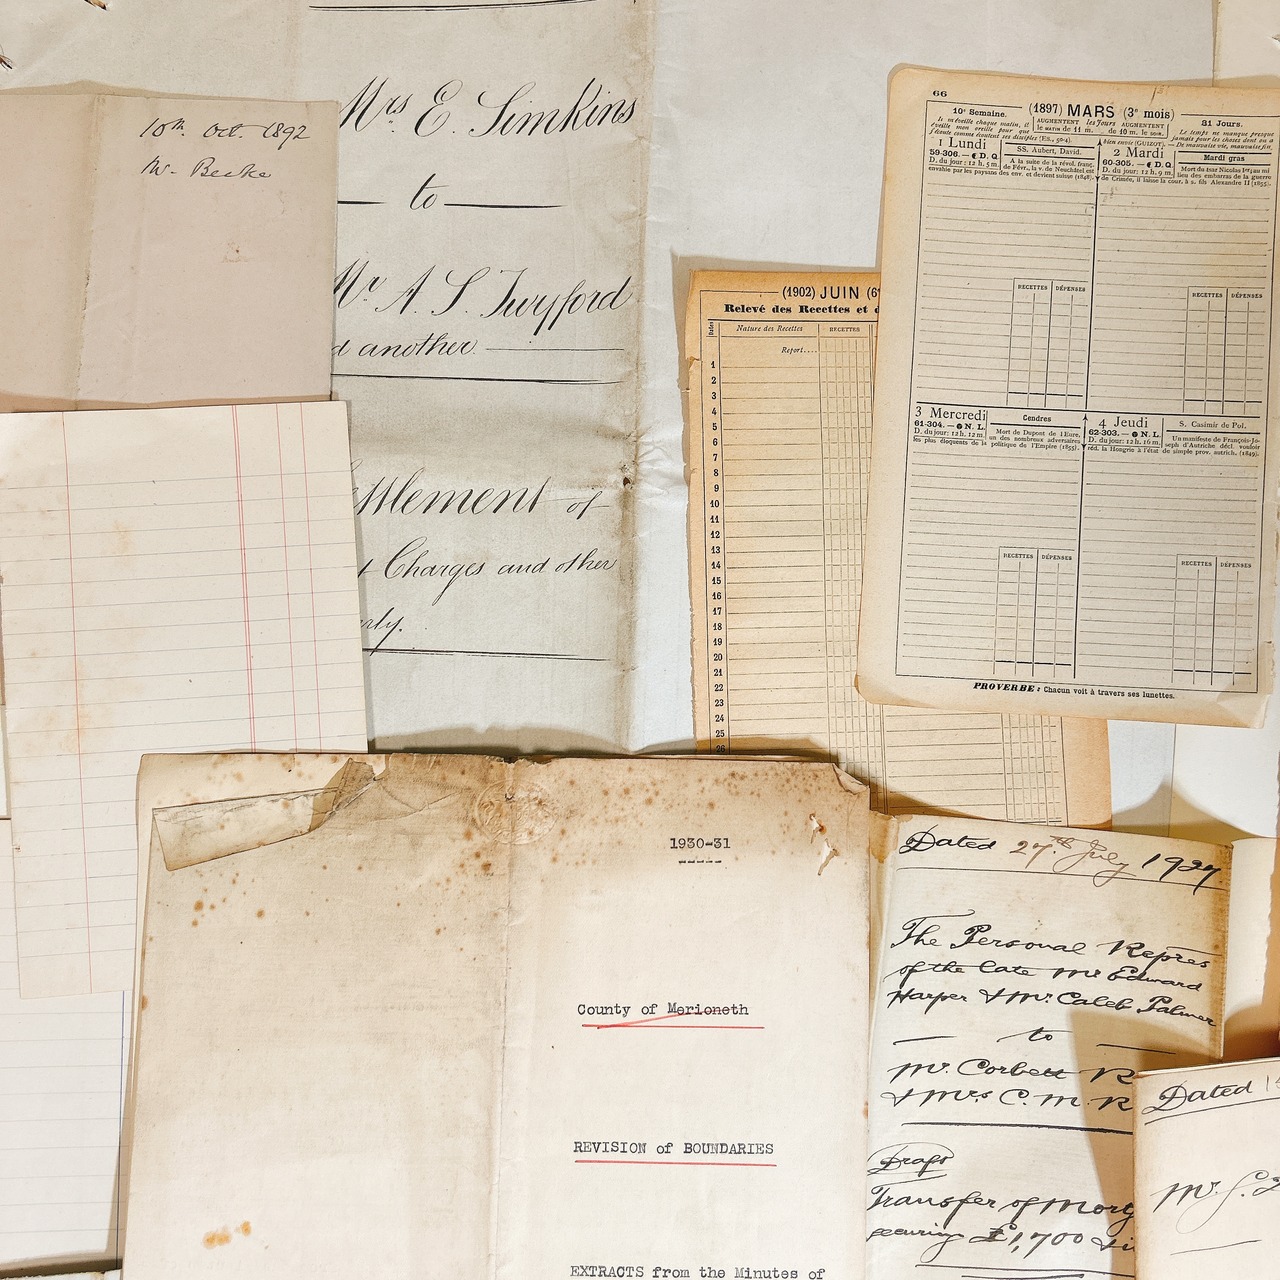 10th Oct. 1892
Mr. Beeke
Mrs. E. Simkins
to
Mr. A. S. Twyford
d another
ttlement of
t Charges and other
rly.
(1902) JUIN (6
Relevé des Recettes et d
Dates
Nature des Recettes
RECETTES
Report....
1
2
3
4
5
6
7
8
9
10
11
12
13
14
15
16
17
18
19
20
21
22
23
24
25
26
66
10e Semaine.
(1897) MARS (3e mois)
31 Jours.
Il m'éveille chaque matin, il
éveille mon oreille pour que
j'écoute comme écoutent ses disciples (Es., 50-4).
AUGMENTENT les Jours AUGMENTENT
le matin de 11 m. de 10 m. le soir.
Le temps ne manque presque
jamais pour les choses dont on a
bien envie (GUIZOT). — De mauvaise vie, mauvaise fin.
1 Lundi
59-306. — D. Q.
D. du jour: 12 h. 5 m.
SS. Aubert, David.
A la suite de la révol. franç.
de Févr., la v. de Neuchâtel est
envahie par les paysans des env. et devient suisse (1848).
2 Mardi
60-305. — D. Q.
D. du jour: 12 h. 9 m.
Mardi gras
Mort du tsar Nicolas Ier; au mi
lieu des embarras de la guerre
de Crimée, il laisse la cour. à s. fils Alexandre II (1855).
RECETTES DÉPENSES
RECETTES DÉPENSES
3 Mercredi
61-304. — N. L.
D. du jour: 12 h. 12 m.
Cendres
Mort de Dupont de l'Eure,
un des nombreux adversaires
les plus éloquents de la politique de l'Empire (1855).
4 Jeudi
62-303. — N. L.
D. du jour: 12 h. 16 m.
S. Casimir de Pol.
Un manifeste de François-Jo-
seph d'Autriche décl. vouloir
réd. la Hongrie à l'état de simple prov. autrich. (1849).
RECETTES DÉPENSES
RECETTES DÉPENSES
PROVERBE : Chacun voit à travers ses lunettes.
1930-31
County of Merioneth
REVISION of BOUNDARIES
EXTRACTS from the Minutes of
Dated 27th July 1927
The Personal Repres
of the late Mr Edward
Harper & Mr Caleb Palmer
to
Mr. Corbett R
& Mrs C. M. R
Draft
Transfer of Mort
securing £1,700 & i
Dated
Mr. J.